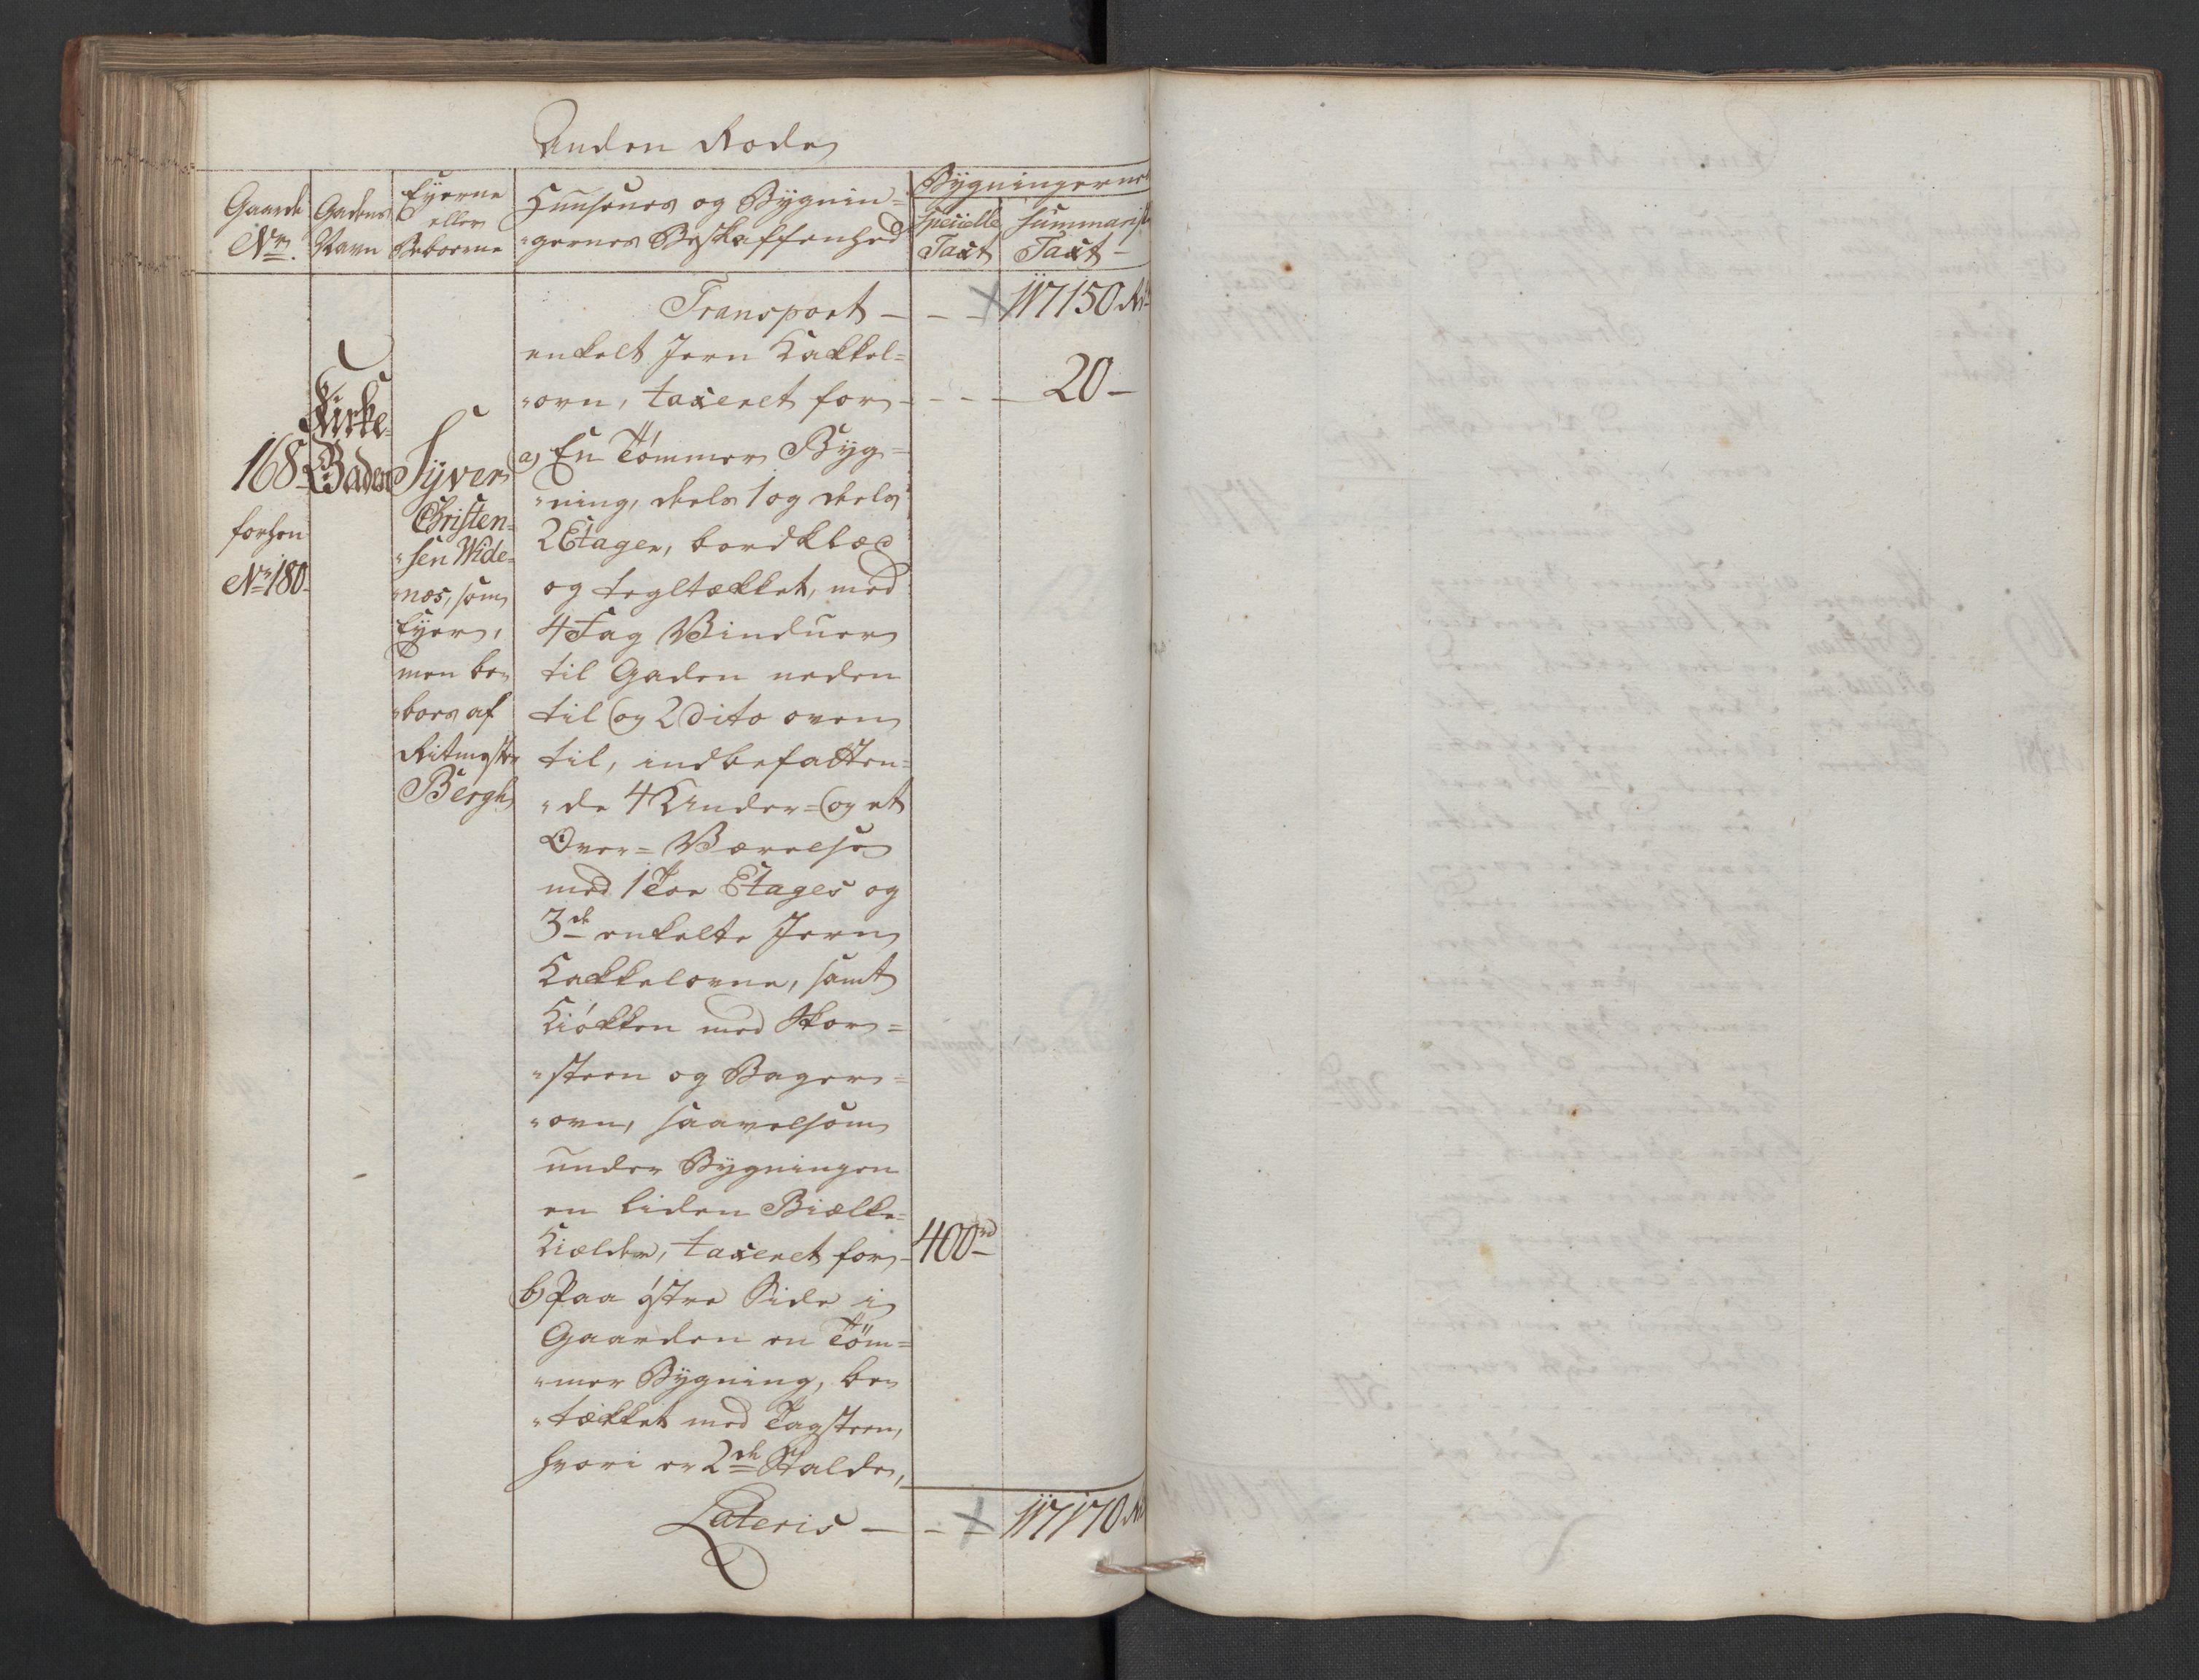 Anden Rode
Gaarde
Nr.
Gadens
Navn
Eyerne
eller
Beboerne
Huusenes og Bygnin-
gernes Beskaffenhed
Bygningernes
Specielle
Taxt
Summarisk
Taxt
Transport — — — 117150 Rd
enkelt Jern Kakkel-
ovn, taxeret for — — — 20 —
168
forhen
Nr. 180
Kirke-
Gaden
Syver
Christen-
sen Wide-
næs, som
Eyer,
men be-
boes af
Ritmester
Bergh
a) En Tömmer Byg-
ning, deels 1 og deels
2 Etager, bordklæd
og tegltækket, med
4 Fag Vinduer
til Gaden neden
til og 2 dito oven
til, indbefatten-
de 4 Under- og et
Over- Værelse
med 1 Toe Etages og
3de enkelte Jern
Kakkelovne, samt
Kiökken med Skor-
steen og Bager-
ovn, saavelsom
under Bygningen
en liden Biælke-
Kielder, taxeret for — 400 rd
b) Paa östre Side i
Gaarden en Töm-
mer Bygning, be-
tækket med Tagsteen,
hvori er 2de Stalde,
Lateris — — — 117170 Rd